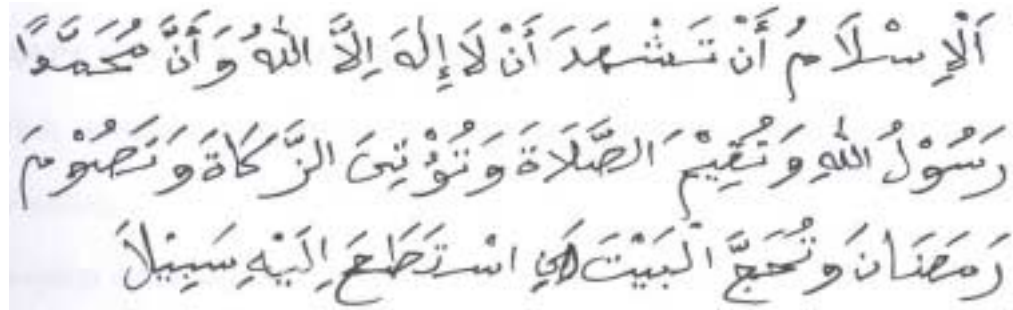 اَلْإِسْلَامُ أَنْ تَشْهَدَ أَنْ لَا إِلٰهَ اِلَّا اللهُ وَأَنَّ مُحَمَّدًا
رَسُوْلُ اللهِ وَتُقِيْمَ الصَّلَاةَ وَتُؤْتِىَ الزَّكَاةَ وَتَصُوْمَ
رَمَضَانَ وَتُحَجَّ الْبَيْتَ اسْتَطَعَ اِلَيْهِ سَبِيْلَا